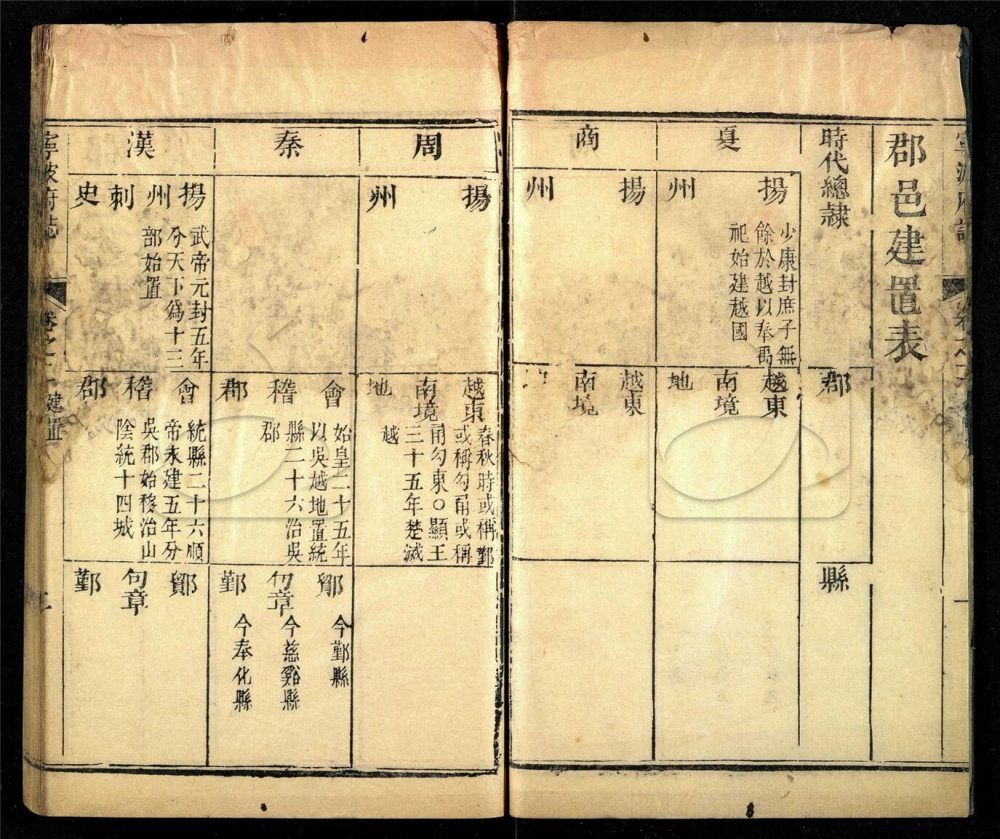 郡邑建置表
時代總隸
郡
縣
夏
揚州
少康封庶子無
餘於越以奉禹
祀始建越國
越東
南境
地
商
揚州
越東
南境
周
揚州
越東
南境
地
春秋時或稱鄞
或稱勾甬或稱
甬勾東○顯王
三十五年楚滅
越
秦
會稽郡
始皇二十五年
以吳越地置統
縣二十六治吳
郡
鄮
今鄞縣
句章
今慈谿縣
鄞
今奉化縣
漢
揚州刺史
武帝元封五年
分天下爲十三
部始置
會稽郡
統縣二十六順
帝永建五年分
吳郡始移治山
陰統十四城
鄮
句章
鄞
寧波府志
建置